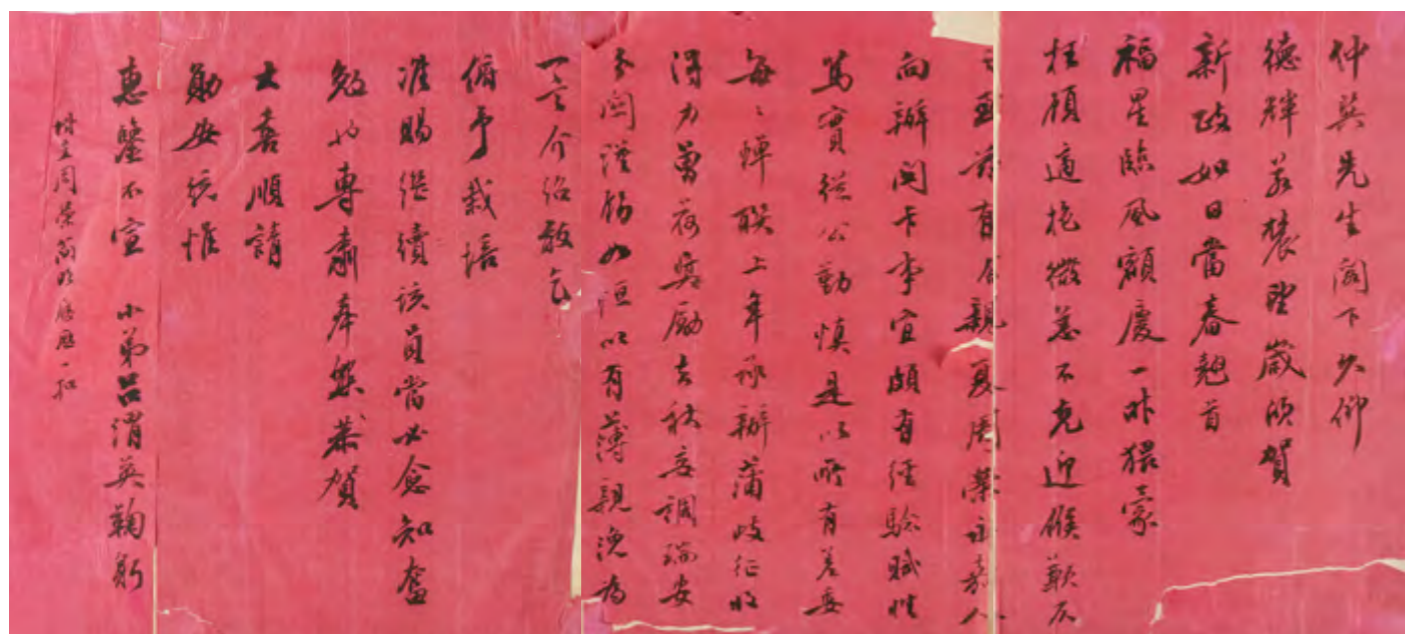 仲英先生閣下久仰
德輝花幾望歲頌賀
新政如日當春翹首
福星臨風額慶一昨猥蒙
枉顧適抱微恙不克迎候歉仄
有 親夏周榮永嘉人
向辦関卡事宜頗有經驗賦性
篤實從公勤慎是以所有差委
每每蟬聯上年承辦蒲岐征收
得力曾荷奬勵去秋忽調瑞安
関 恒以有薄親浼為
一言介紹敬乞
俯予栽培
准賜繼續該員當必愈知奮
勉也專肅奉懇恭賀
大喜順請
勛安統惟
惠鑒不宣 小弟呂渭英鞠躬
坿呈周榮簡明履歷一扣